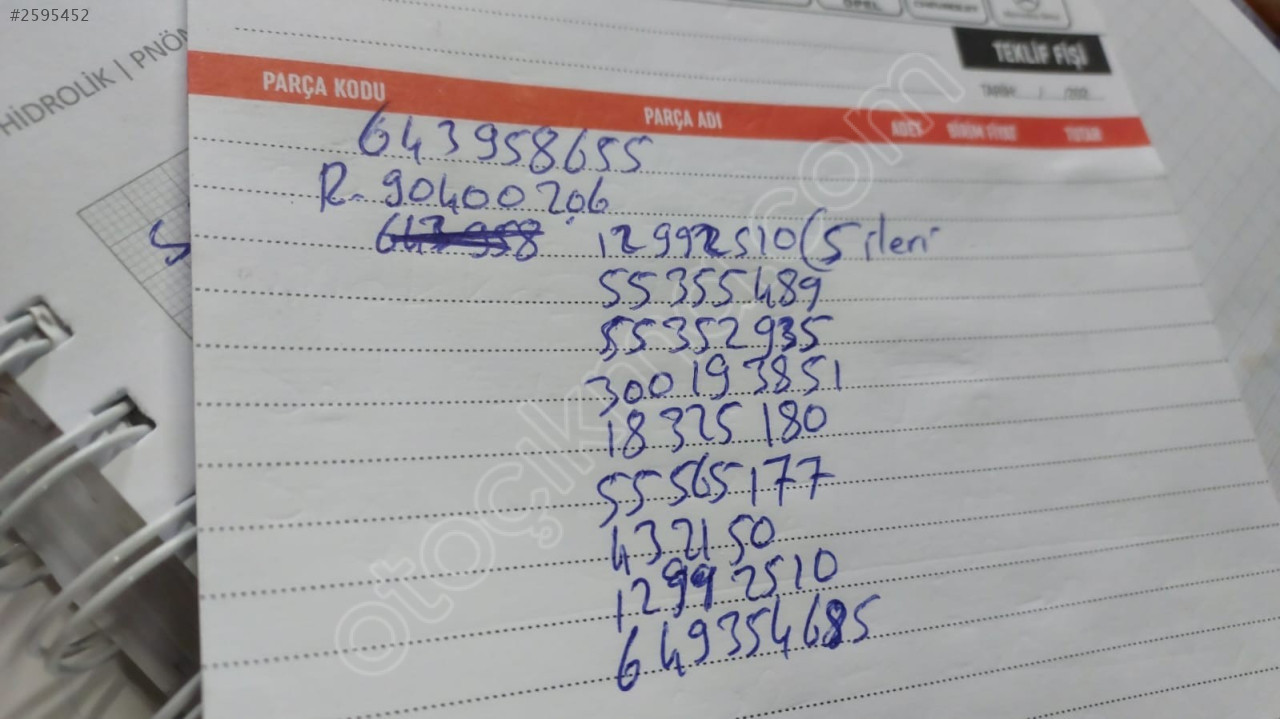 #2595452
OPEL CHEVROLET
TEKLİF FİŞİ
HİDROLİK | PNÖ
TARİH: / /202
PARÇA KODU PARÇA ADI ADET BİRİM FİYAT TUTAR
643958655
R- 90400206
643958 12992510 (5 ileri
55355489
55352935
300193851
18325180
55565177
432150
12992510
649354685
otoçıkma.com